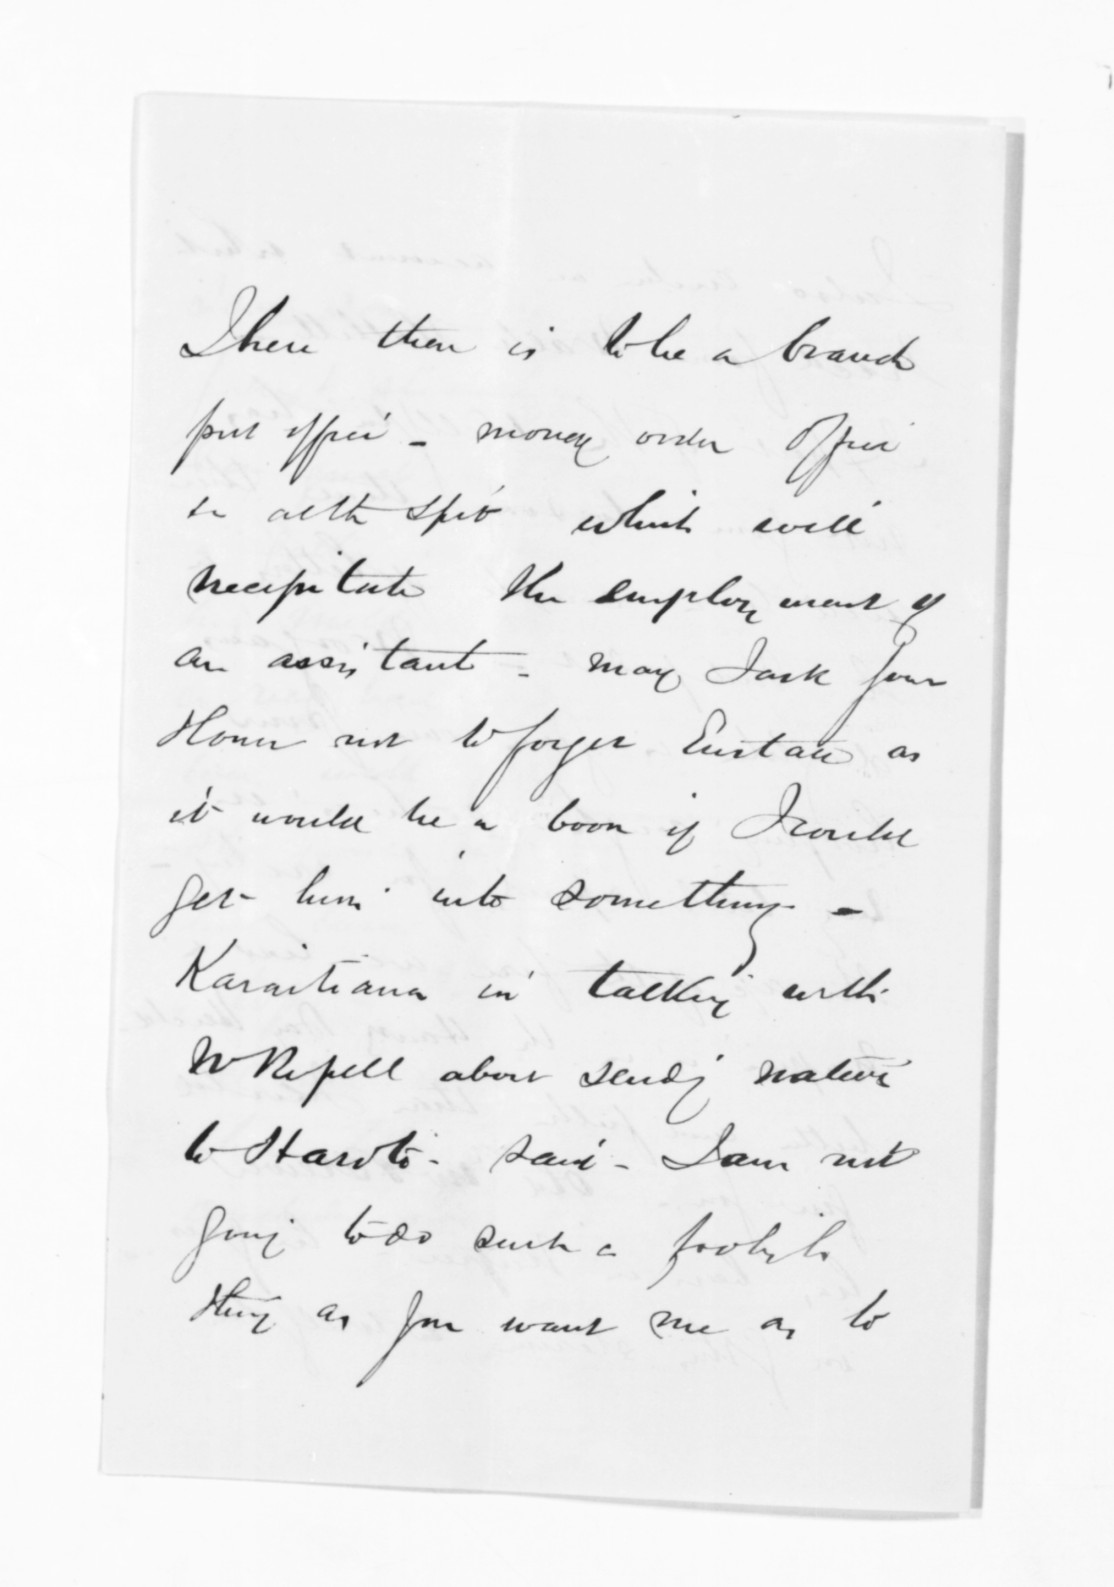 I hear there is to be a branch
post office - money order office
in at the Spit which will
necessitate the employment of
an assistant - may I ask your
Honor not to forget Eustace as
it would be a boon if I could
get him into something -
Karaitiana in talking with
about sendg natives
to said - I am not
going to do such a foolish
thing as you want me as to